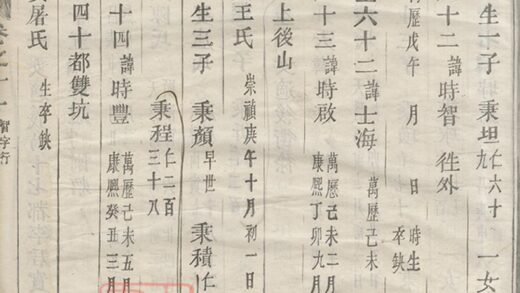 生一子 乘坦 仁六十九 一女
十二 諱時智 徃外
萬歷戊午 月 日 時生 卒缺
六十二 諱士海 萬歷己未
十三 諱時啟 萬歷己未二月 康熙丁卯九月
上後山
王氏 崇禎庚午十月初一日
生三子 乘顏 早世 乘積 仁
乘程 仁二百三十八
十四 諱時豐 萬歷己未五月 康熙癸丑三月
四十都雙坑
屠氏 生卒缺
卷之十一 智字行